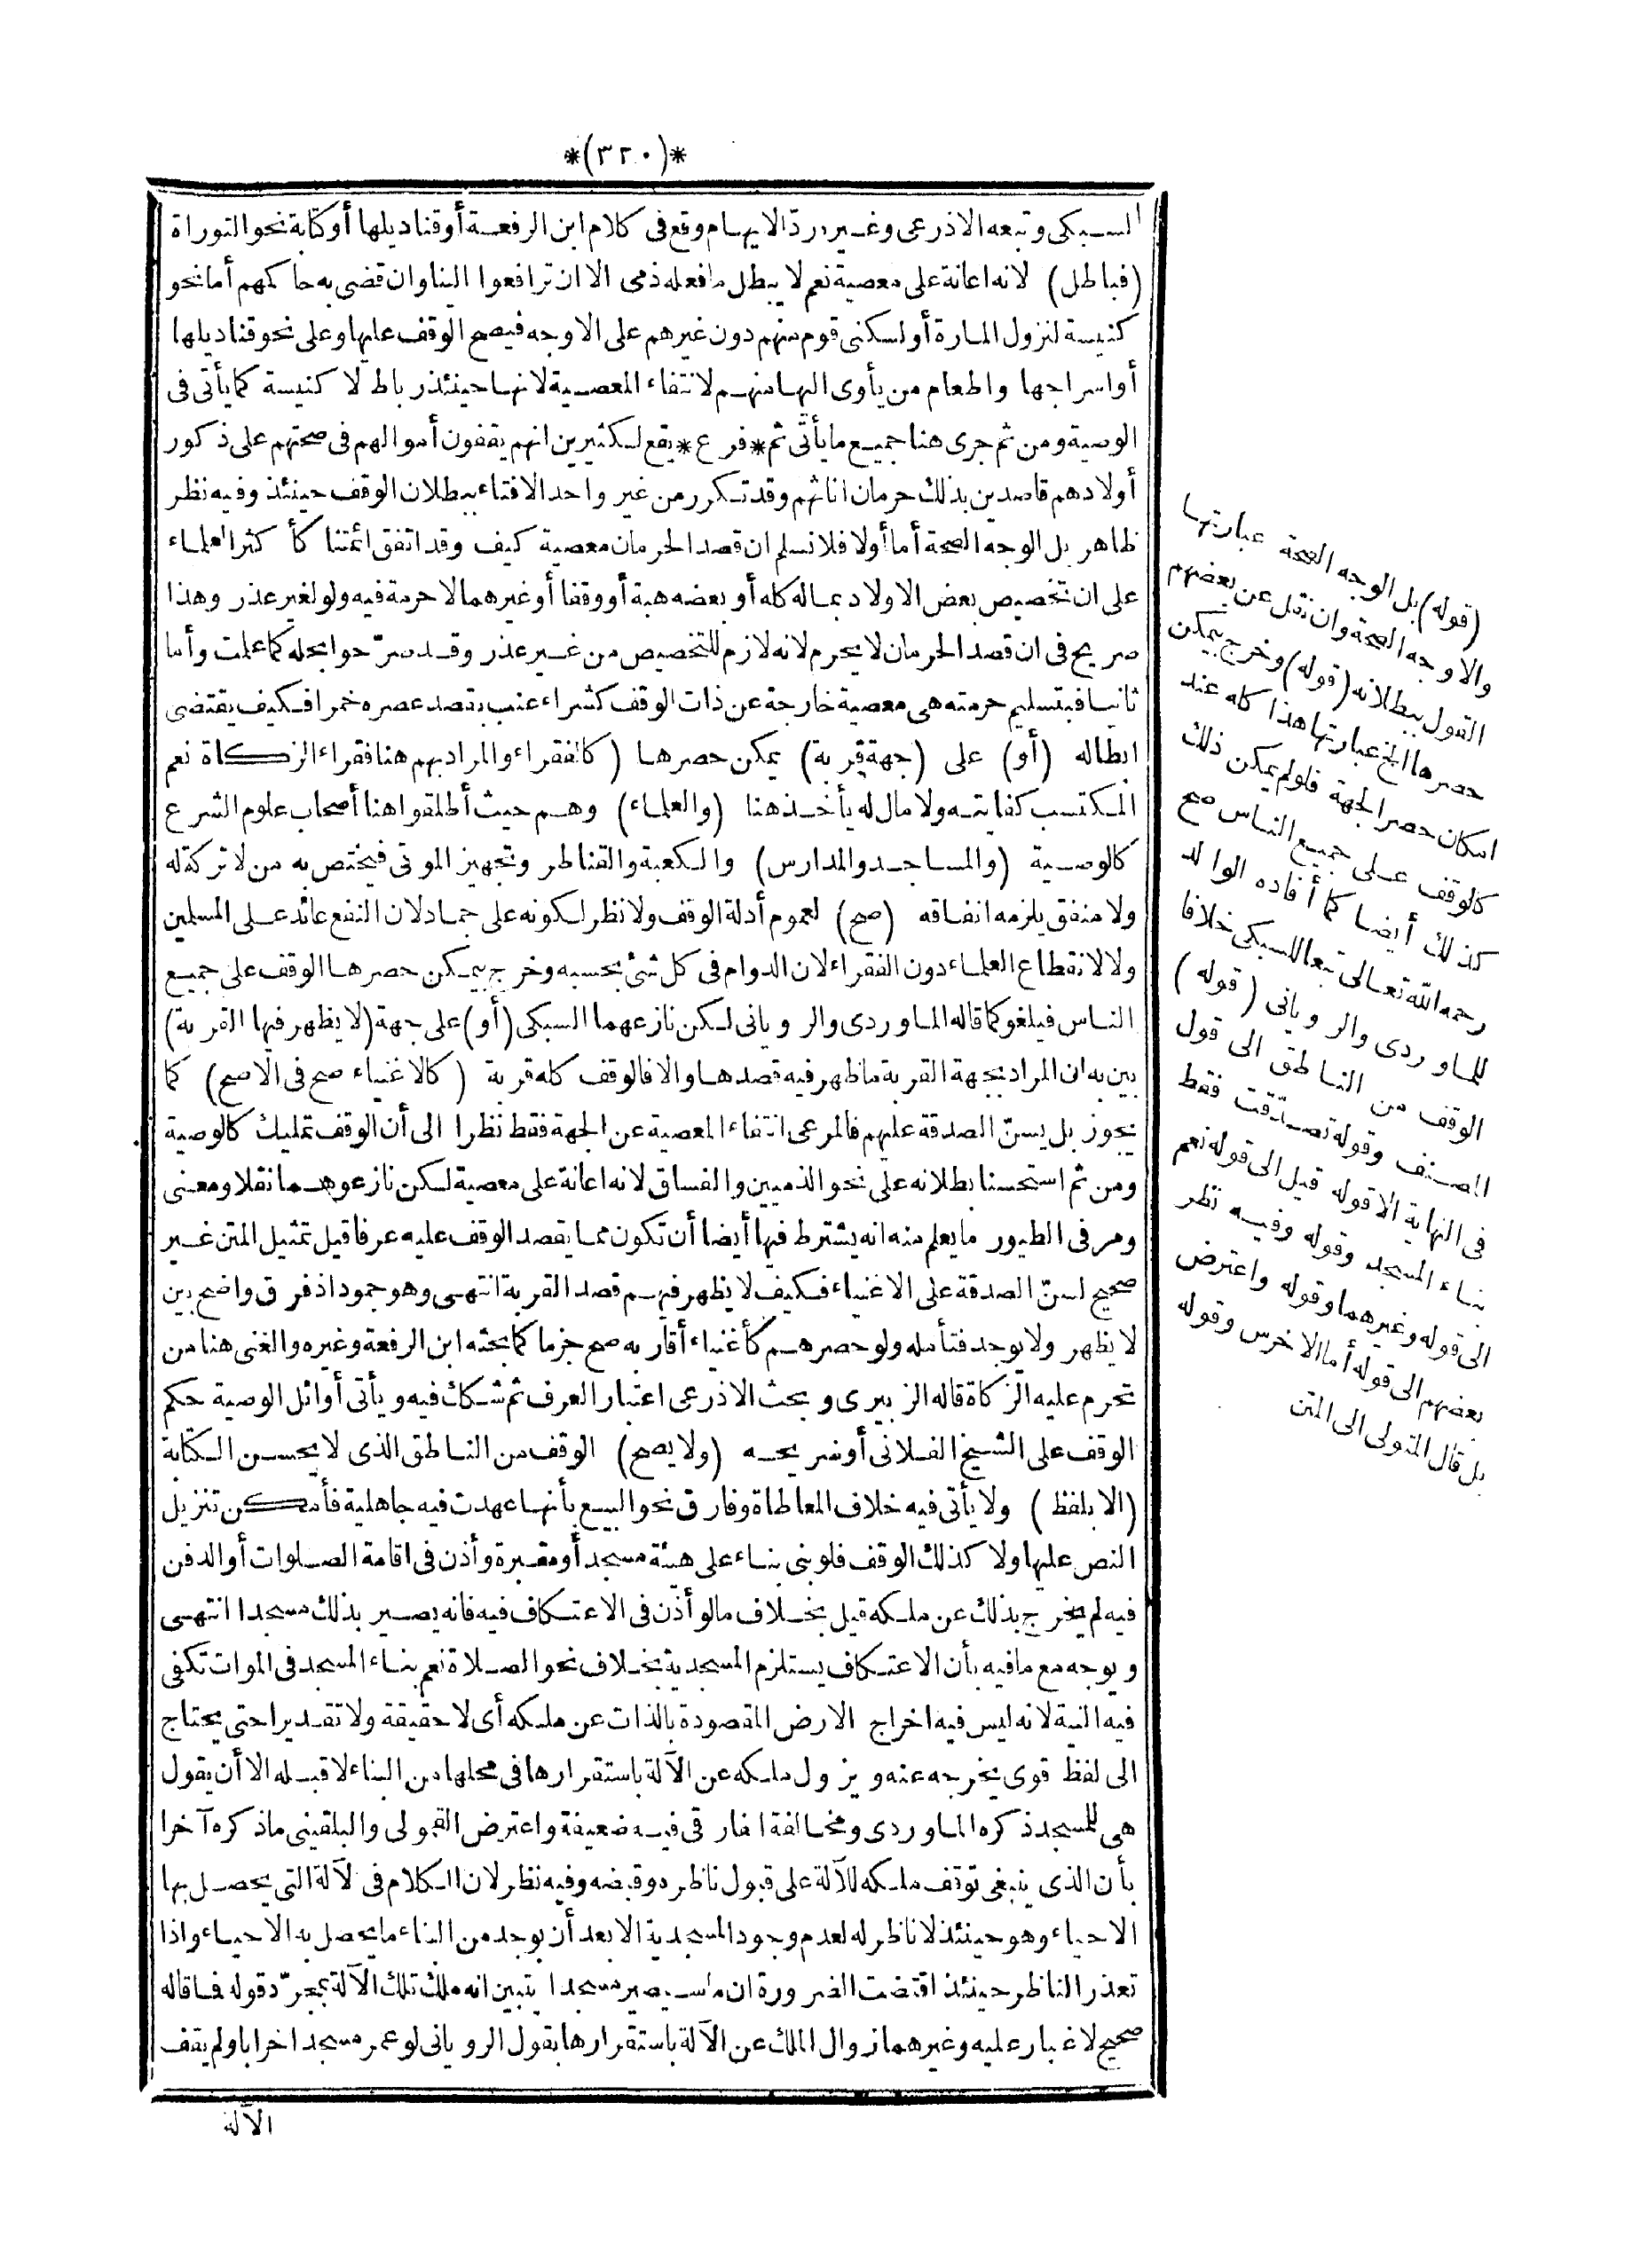 *(٣٢٠)*
السبكى وتبعه الاذرعى وغيره ردّا لايهام وقع فى كلام ابن الرفعة أو قناديلها أو كتابة نحو التوراة
(فباطل) لانه اعانة على معصية نعم لا يبطل ما فعله ذمى الا ان ترافعوا الينا وان قضى به حاكمهم أما نحو
كنيسة لنزول المارة أو لسكنى قوم منهم دون غيرهم على الاوجه فيصح الوقف عليها وعلى نحو قناديلها
أو اسراجها واطعام من يأوى اليها منهم لانتفاء المعصية لانها حينئذ رباط لا كنيسة كما يأتى فى
الوصية ومن ثم جرى هنا جميع ما يأتى ثم *فرع* يقع لكثيرين انهم يقفون أموالهم فى صحتهم على ذكور
أولادهم قاصدين بذلك حرمان اناثهم وقد تكرر من غير واحد الافتاء ببطلان الوقف حينئذ وفيه نظر
ظاهر بل الوجه الصحة أما أولا فلا نسلم ان قصد الحرمان معصية كيف وقد اتفق ائمتنا كأكثر العلماء
على ان تخصيص بعض الاولاد بماله كله أو بعضه هبة أو وقفا أو غيرهما لا حرمة فيه ولو لغير عذر وهذا
صريح فى ان قصد الحرمان لا يحرم لانه لازم للتخصيص من غير عذر وقد صرّحوا بحله كما علمت وأما
ثانيا فبتسليم حرمته هى معصية خارجة عن ذات الوقف كشراء عنب بقصد عصره خمرا فكيف يقتضى
ابطاله (أو) على (جهة قربة) يمكن حصرها (كالفقراء) والمراد بهم هنا فقراء الزكاة نعم
المكتسب كفايته ولا مال له يأخذ هنا (والعلماء) وهم حيث أطلقوا هنا أصحاب علوم الشرع
كالوصية (والمساجد والمدارس) والكعبة والقناطر وتجهيز الموتى فيختص به من لا تركة له
ولا منفق يلزمه انفاقه (صح) لعموم أدلة الوقف ولا نظر لكونه على جماد لان النفع عائد على المسلمين
ولا لانقطاع العلماء دون الفقراء لان الدوام فى كل شئ بحسبه وخرج بيمكن حصرها الوقف على جميع
الناس فيلغو كما قاله الماوردى والرويانى لكن نازعهما السبكى (أو) على جهة (لا يظهر فيها القربة)
بين به ان المراد بجهة القربة ما ظهر فيه قصدها والا فالوقف كله قربة (كالاغنياء صح فى الاصح) كما
يجوز بل يسنّ الصدقة عليهم فالمرعى انتفاء المعصية عن الجهة فقط نظرا الى أن الوقف تمليك كالوصية
ومن ثم استحسنا بطلانه على نحو الذميين والفساق لانه اعانة على معصية لكن نازعوهما نقلا ومعنى
ومر فى الطيور ما يعلم منه انه يشترط فيها أيضا أن تكون مما يقصد الوقف عليه عرفا قيل تمثيل المتن غير
صحيح لسنّ الصدقة على الاغنياء فكيف لا يظهر فيهم قصد القربة انتهى وهو جمود اذ فرق واضح بين
لا يظهر ولا يوجد فتأمله ولو حصرهم كأغنياء أقاربه صح جزما كما بحثه ابن الرفعة وغيره والغنى هنا من
تحرم عليه الزكاة قاله الزبيرى وبحث الاذرعى اعتبار العرف ثم شكك فيه ويأتى أوائل الوصية حكم
الوقف على الشيخ الفلانى أو ضريحه (ولا يصح) الوقف من الناطق الذى لا يحسن الكتابة
(الا بلفظ) ولا يأتى فيه خلاف المعاطاة وفارق نحو البيع بأنها عهدت فيه جاهلية فأمكن تنزيل
النص عليها ولا كذلك الوقف فلو بنى بناء على هيئة مسجد أو مقبرة وأذن فى اقامة الصلوات أو الدفن
فيه لم يخرج بذلك عن ملكه قيل بخلاف ما لو أذن فى الاعتكاف فيه فانه يصير بذلك مسجدا انتهى
ويوجه مع ما فيه بأن الاعتكاف يستلزم المسجدية بخلاف نحو الصلاة نعم بناء المسجد فى الموات تكفى
فيه النية لانه ليس فيه اخراج الارض المقصودة بالذات عن ملكه أى لا حقيقة ولا تقديرا حتى يحتاج
الى لفظ قوى يخرجه عنه ويزول ملكه عن الآلة باستقرارها فى محلها من البناء لا قبله الا أن يقول
هى للمسجد ذكره الماوردى ومخالفة الفارقى فيه ضعيفة واعترض القمولى والبلقينى ما ذكره آخرا
بأن الذى ينبغى توقف ملكه للآلة على قبول ناظره وقبضه وفيه نظر لان الكلام فى الآلة التى يحصل بها
الاحياء وهو حينئذ لا ناظر له لعدم وجود المسجدية الا بعد أن يوجد من البناء ما يحصل به الاحياء واذا
تعذر الناظر حينئذ اقتضت الضرورة ان ما سيصير مسجدا يتبين انه ملك تلك الآلة بمجرّد قوله فما قاله
صحيح لا غبار عليه وغيرهما زوال الملك عن الآلة باستقرارها بقول الرويانى لو عمر مسجدا خرابا ولم يقف
الآلة
(قوله) بل الوجه الصحة عبارتها
والاوجه الصحة وان نقل عن بعضهم
القول ببطلانه (قوله) وخرج بيمكن
حصرها الخ عبارتها هذا كله عند
امكان حصر الجهة فلو لم يمكن ذلك
كالوقف على جميع الناس صح
كذلك أيضا كما أفاده الوالد
رحمه الله تعالى تبعا للسبكى خلافا
للماوردى والرويانى (قوله)
الوقف من الناطق الى قول
المصنف وقوله تصدّقت فقط
فى النهاية الا قوله قيل الى قوله نعم
بناء المسجد وقوله وفيه نظر
الى قوله وغيرهما وقوله واعترض
بعضهم الى قوله أما الاخرس وقوله
بل قال المتولى الى المتن